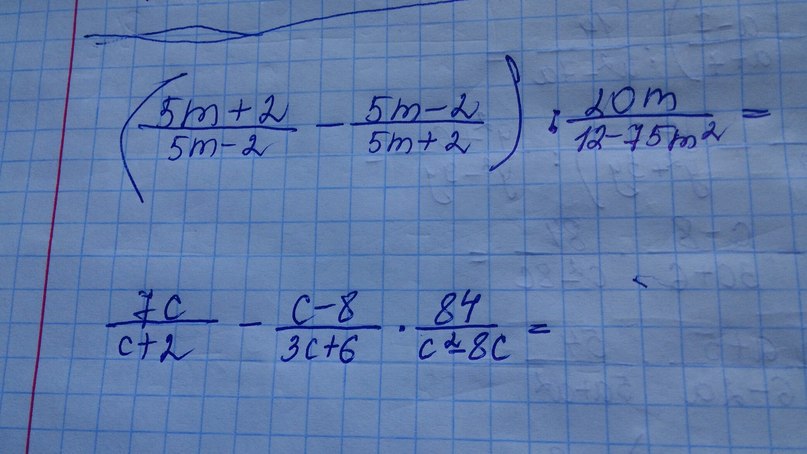 ((5m+2)/(5m-2) - (5m-2)/(5m+2)) : 20m/(12-75m²) =
7c/(c+2) - (c-8)/(3c+6) · 84/(c²-8c) =